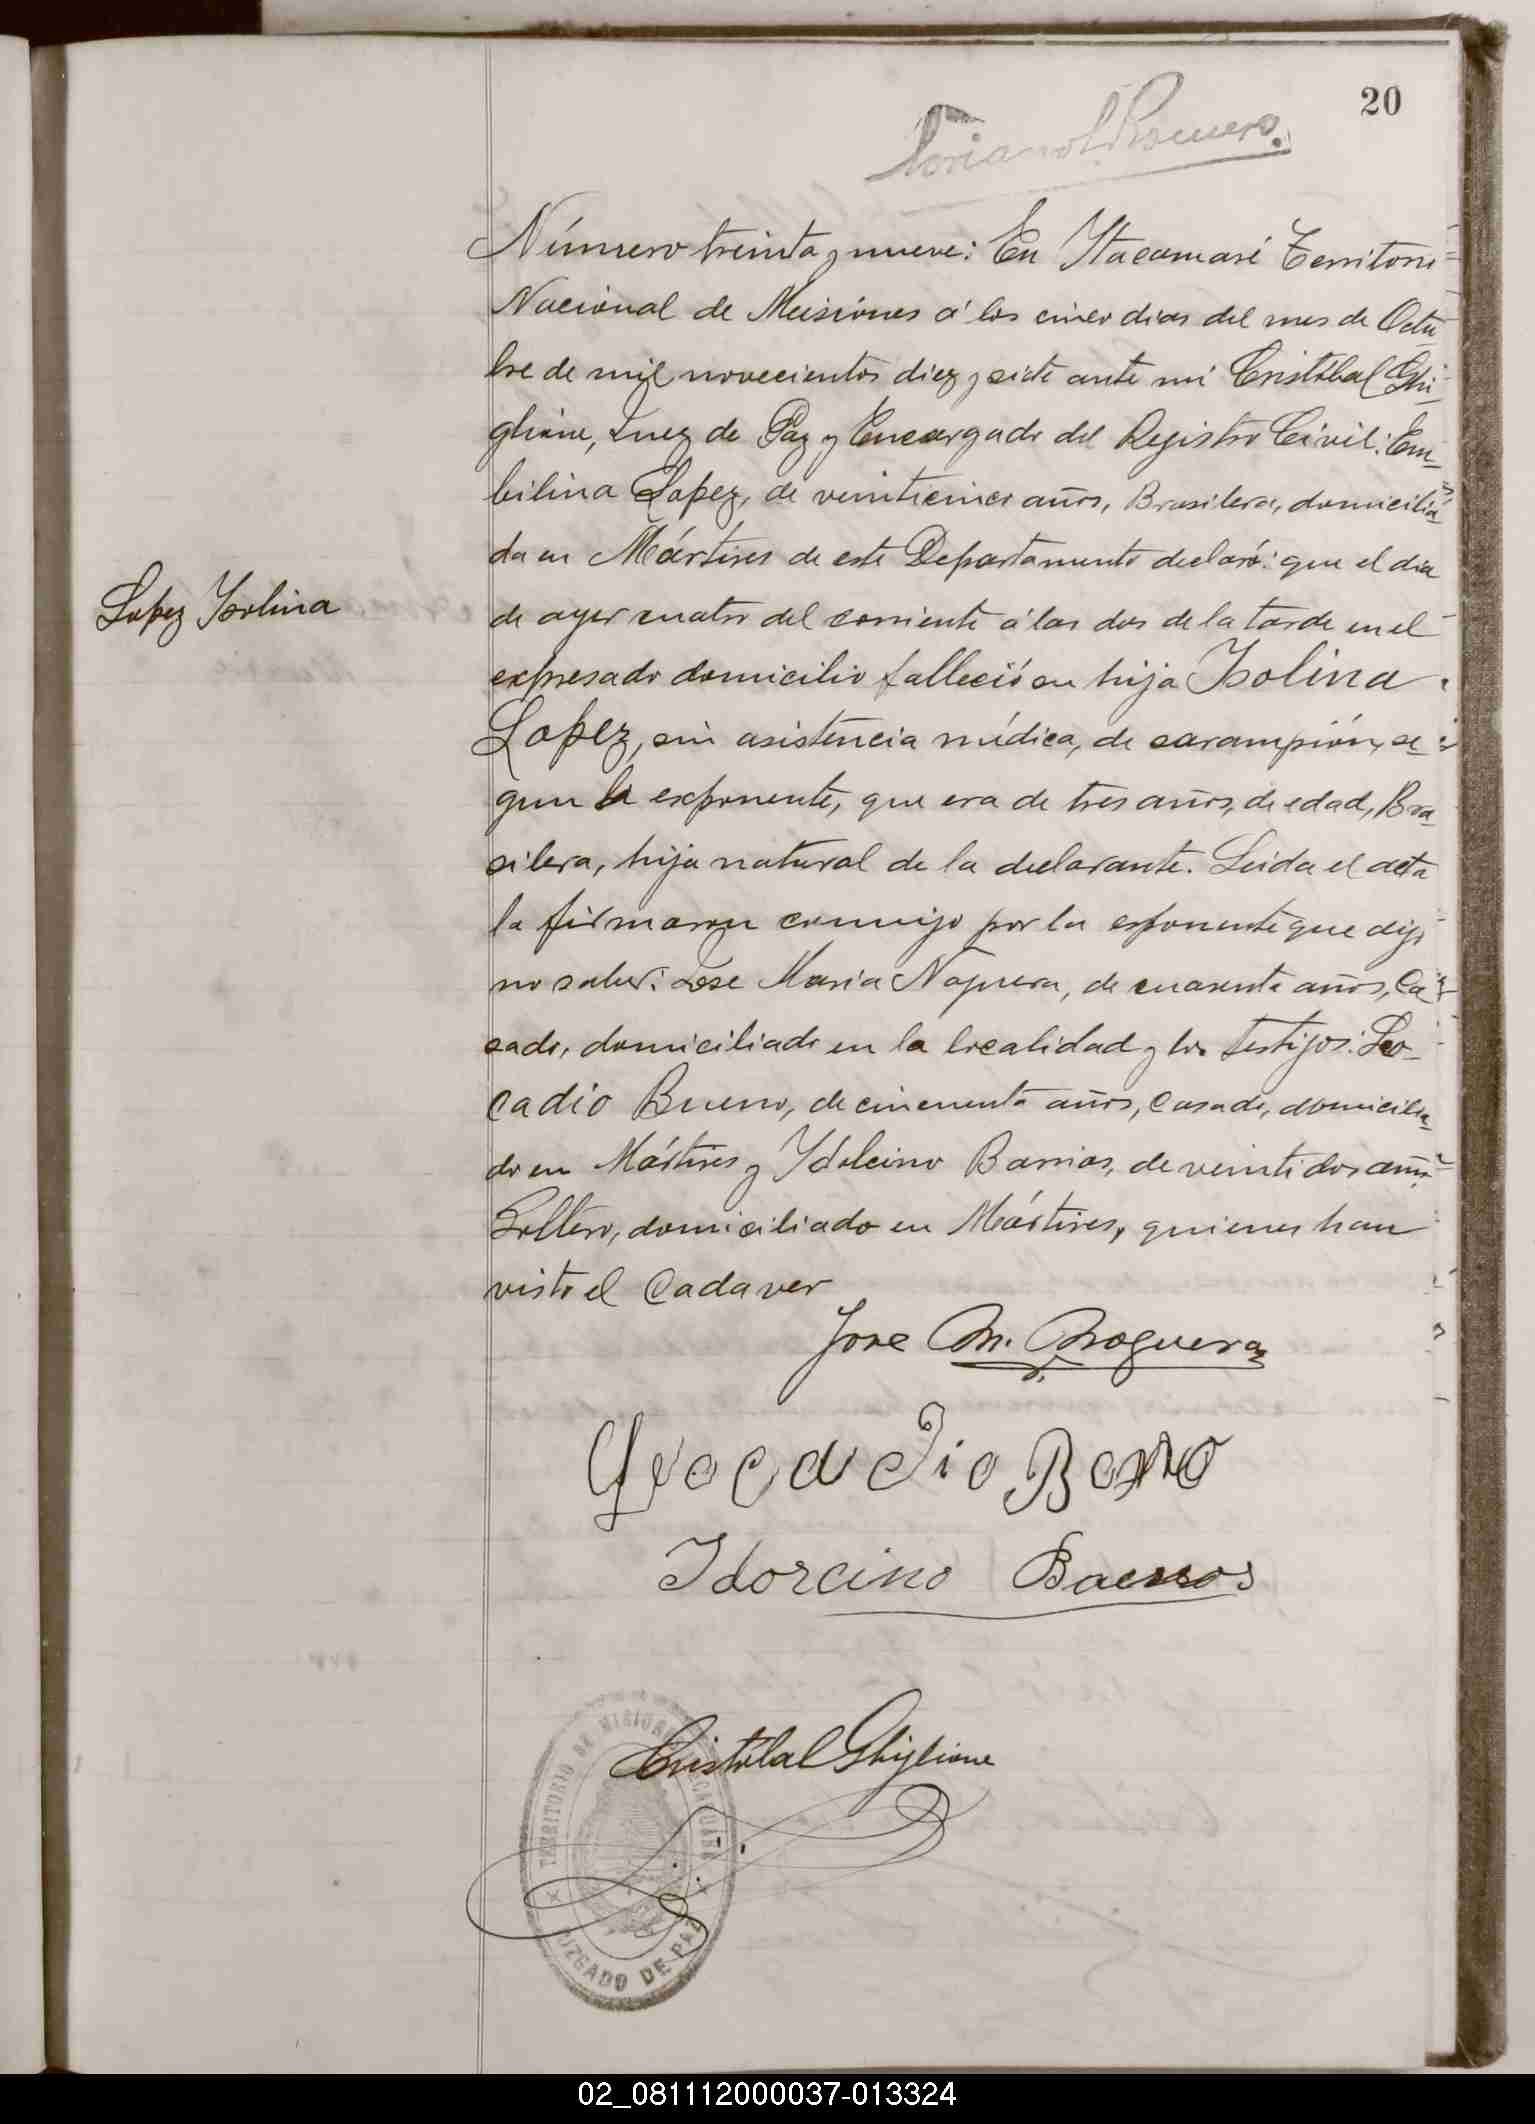 20
Número treinta y nueve: En Ytacaruaré Territorio
Nacional de Misiones á los cinco dias del mes de Octu
bre de mil novecientos diez y siete ante mi Cristóbal Ghi-
glione, Juez de Paz y Encargado del Registro Civil: Em-
bilina Lopez, de veinticinco años, Brasilera, domicilia-
da en Mártires de este Departamento declaró: que el dia
Lopez Isolina
de ayer cuatro del corriente á las dos de la tarde en el
expresado domicilio falleció su hija Isolina
Lopez, sin asistencia médica, de sarampión, se-
gun la exponente, que era de tres años, de edad, Bra-
silera, hija natural de la declarante. Leida el acta
la firmaron conmigo por la exponente que dijo
no saber: Jose Maria Noguera, de cuarenta años, Ca
sado, domiciliado en la localidad y los testigos: Leo-
cadio Bueno, de cincuenta años, Casado, domicilia-
do en Mártires y Ydolcino Barrios, de veintidos años
Soltero, domiciliado en Mártires, quienes han
visto el Cadaver
Jose M. Noguera
Leocadio
Idorcino Barros
Cristóbal Ghiglione
TERRITORIO DE MISIONES
JUZGADO DE PAZ
02_081112000037-013324